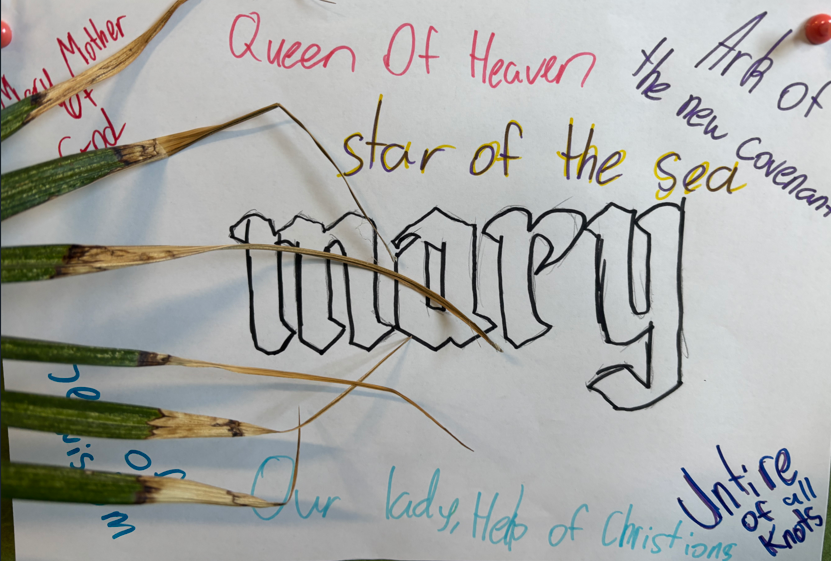 Mary Mother
Of
God
Queen Of Heaven
Ark of
the new covenant
star of the sea
mary
Our lady, Help of Christians
Untire
of all
Knots